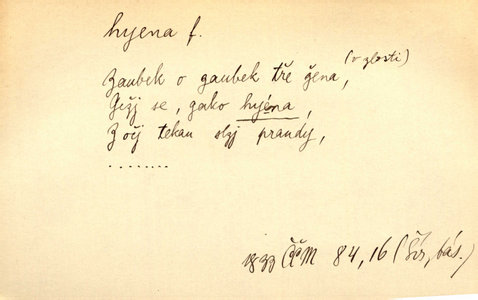 hyena f.
Zaubek o gaubek tře žena, (v zlosti)
Gežj se, gako hyéna,
Z očj tekau slzj praudy,
........
1833 ČČM 84, 16 (Šír, bás.)